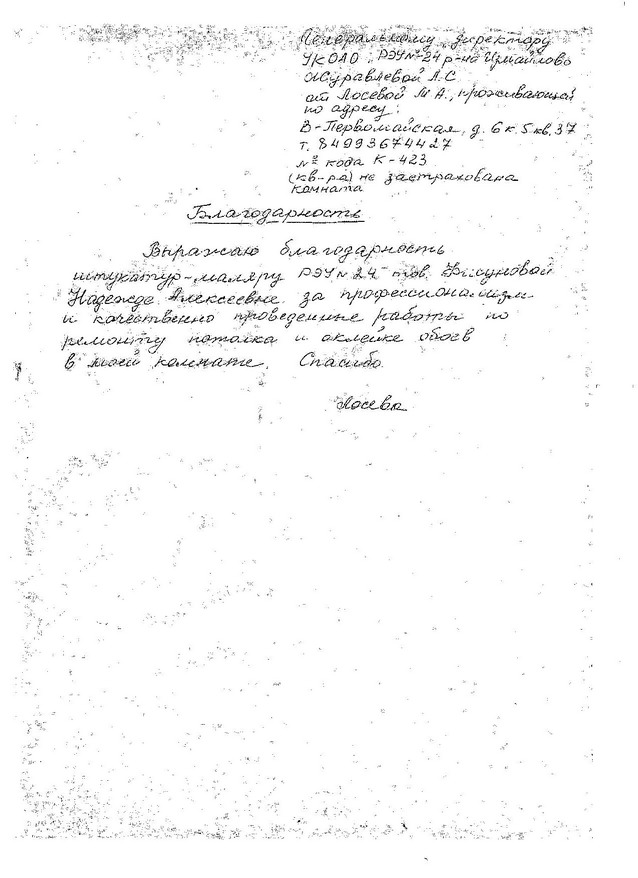 Генеральному директору
УКОАО, РЭУ №24 р-на Измайлово
Журавлевой Л.С.
от Лосевой М.А., проживающей
по адресу:
В-Первомайская, д. 6 к. 5 кв. 37
т. 84993674427
№ кода К-423
(кв-ра) не застрахована
комната
Благодарность
Выражаю благодарность
штукатур-маляру РЭУ №24 тов. Фисуновой
Надежде Алексеевне за профессионализм
и качественно проведенные работы по
ремонту потолка и оклейке обоев
в моей комнате. Спасибо.
Лосева